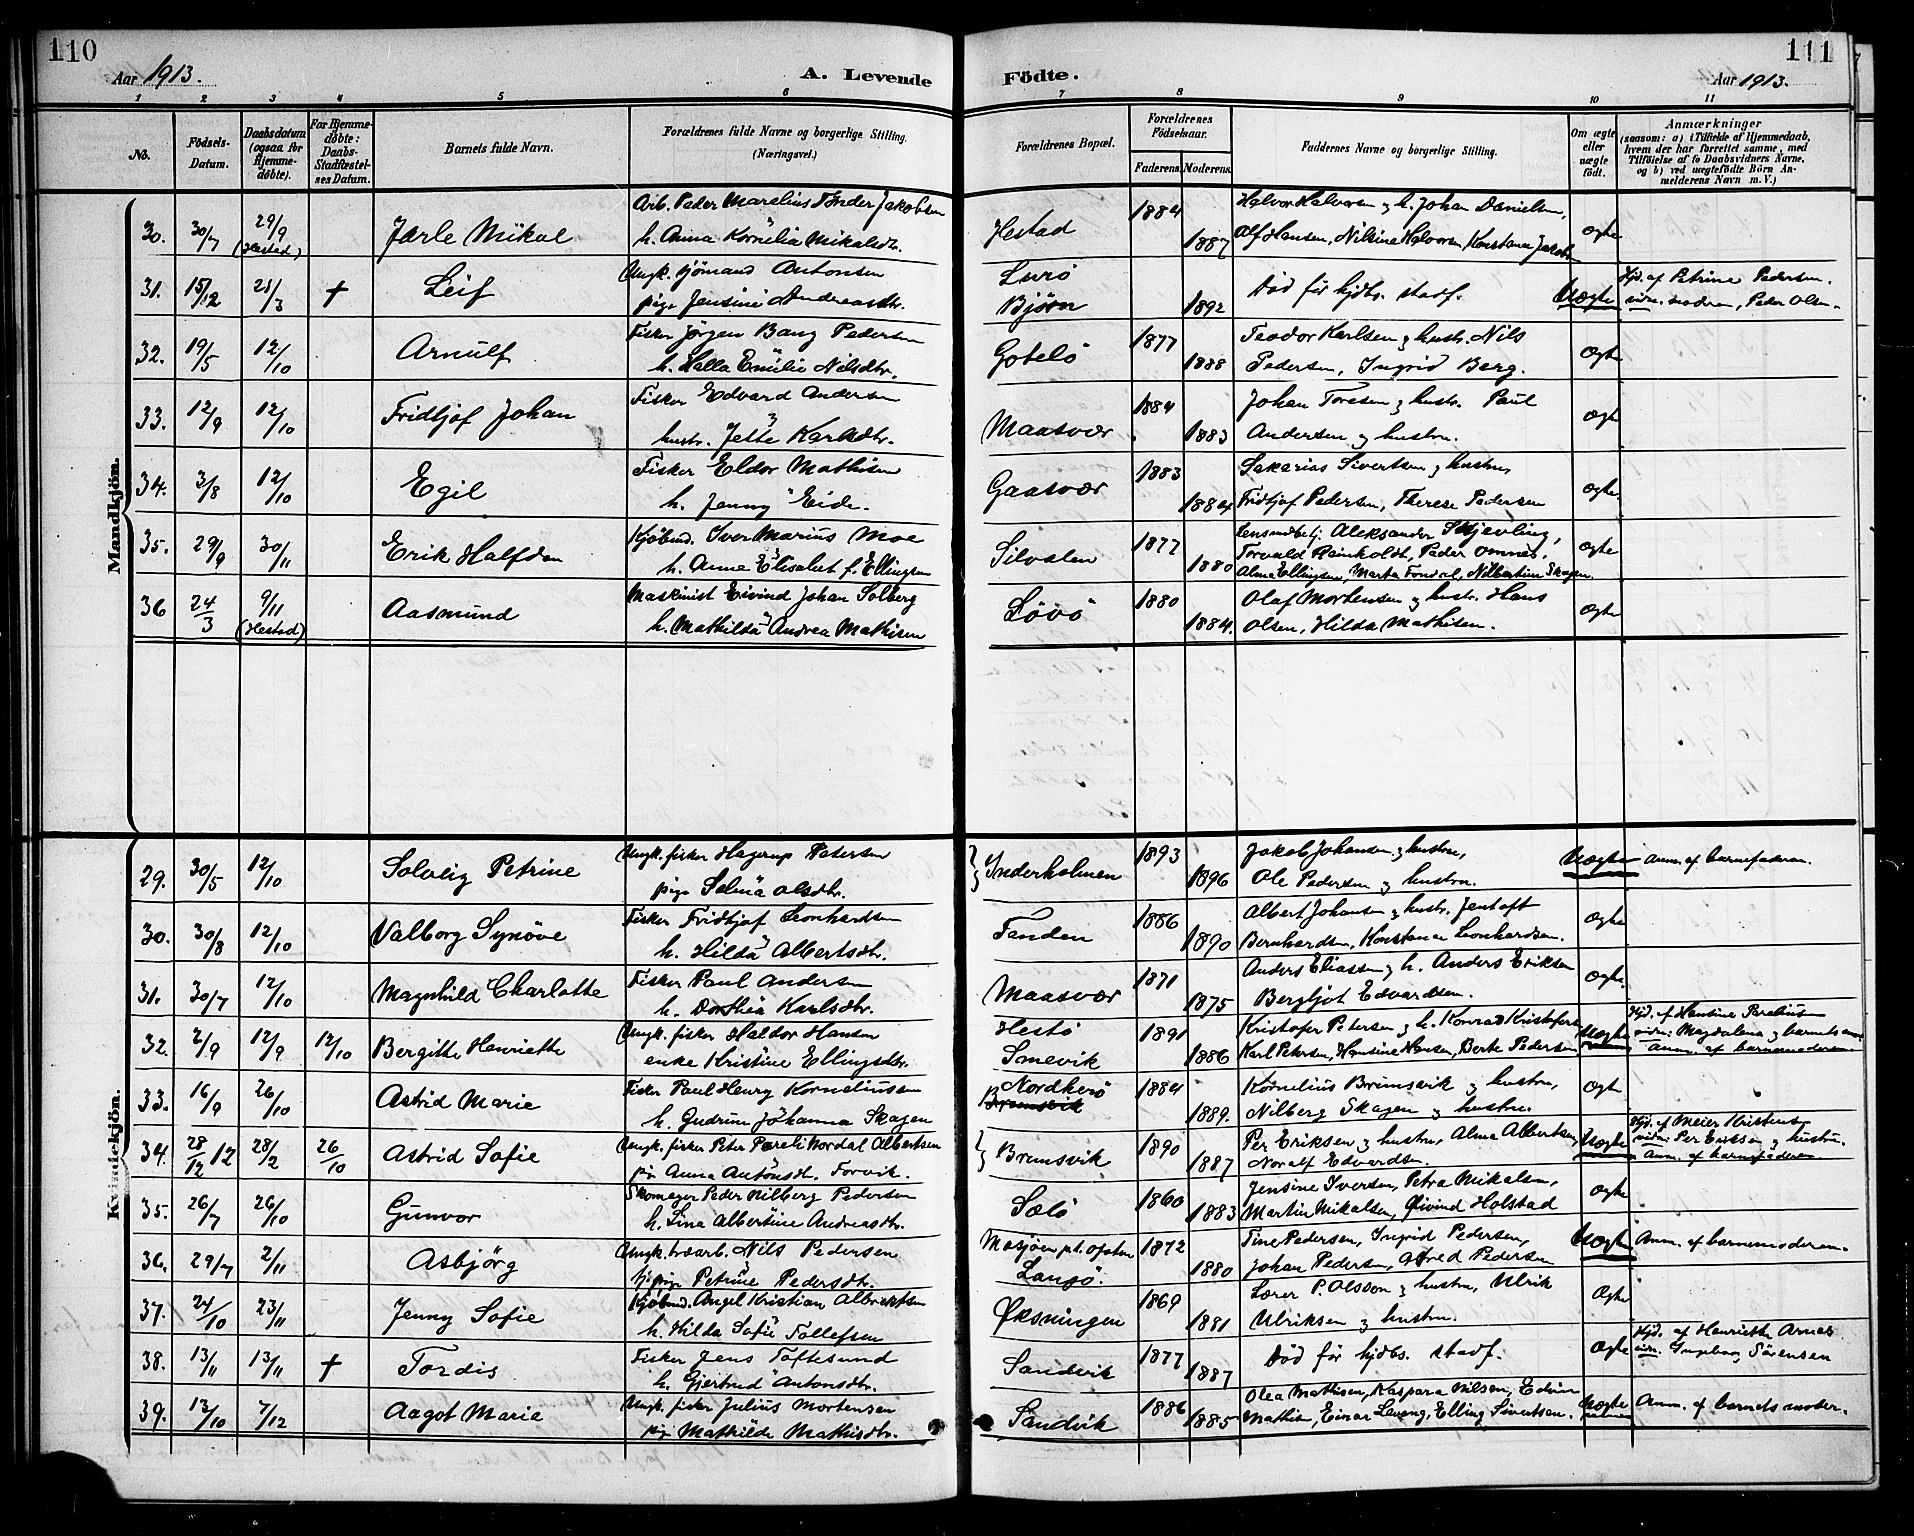 110
111
Aar 1913.
A. Levende
Födte.
Aar 1913.
1 2 3 4 5 6 7 8 9 10 11
No.
Födsels-Datum.
Daabsdatum (ogsaa for Hjemme-döbte).
For Hjemme-döbte: Daabs-Stadfæstel-ses Datum.
Barnets fulde Navn.
Forældrenes fulde Navne og borgerlige Stilling.
(Næringsvei.)
Forældrenes Bopæl.
Forældrenes Födselsaar.
Faderens. Moderens.
Faddernes Navne og borgerlige Stilling.
Om ægte eller uægte födt.
Anmærkninger
(saasom: a) i Tilfælde af Hjemmedaab,
hvem der har forrettet samme, med
Tilföielse af to Daabsvidners Navne,
og b) ved uægtefödte Börn An-
melderens Navn m. V.)
Mandkjön.
30. 30/7 29/9 (Hestad) Jarle Mikal
Arb. Peder Marelius Tönder Jakobsen
h. Anna Kornelia Mikalsdtr.
Hestad 1884 1887
Halvor Halvorsen og h. Johan Danielsen,
Alf Hansen, Nilsine Halvorsen, Konstanse Jakobs.
ægte
31. 15/12 21/3 † Leif
Ungk. sjömand Antonsen
pige Jensine Andreasdtr.
Lurö
Björn 1892
Död för hjdb. stadf.
Uægte
Hjd. af Petrine Pedersen.
vidn. moderen, Peder Olsen.
32. 19/5 12/10 Arnulf
Fisker Jörgen Bang Pedersen
h. Halla Emilie Nilsdtr.
Gotelö 1877 1888
Teodor Karlsen og hustr. Nils
Pedersen, Ingrid Berg.
ægte
33. 12/9 12/10 Fridtjof Johan
Fisker Edvard Andersen
hustr. Jette Karlsdtr.
Maasvær 1884 1883
Johan Toresen og hustr. Paul
Andersen og hustru.
ægte
34. 3/8 12/10 Egil
Fisker Eldor Mathisen
h. Jenny Eide.
Gaasvær 1883 1884
Sakarias Sivertsen og hustru,
Fridtjof Pedersen, Therese Pedersen
ægte
35. 29/9 30/11 Erik Halfdan
Kjöbmd. Iver Marius Moe
h. Anna Elisabet f. Ellingsen
Silvalen 1877 1880
Lensmdbetj. Aleksander Skjevling,
Torvald Reinholdt, Peder Omnes,
Alma Ellingsen, Marta Fondal, Nilbertine Skagen
ægte
36 24/3 9/11 (Hestad) Aasmund
Maskinist Eivind Johan Solberg
h. Mathilda Andrea Mathisen
Lövö 1880 1884.
Olaf Mortensen og hustr. Hans
Olsen, Hilda Mathisen.
ægte
Kvindekjön.
29. 30/5 12/10 Solveig Petrine
Ungk. fisker Hagerup Petersen
pige Selma Olsdtr.
Inderholmen 1893 1896
Jakob Johansen og hustru,
Ole Pedersen og hustru.
Uægte
Anm. af barnefaderen.
30. 30/8 12/10 Valborg Synöve
Fisker Fridtjof Leonhardsen
h. Hilda Albertsdtr.
Tenden 1886 1890
Albert Johansen og hustr. Jentoft
Bernhardsen, Konstance Leonhardsen.
ægte
31. 30/7 12/10 Magnhild Charlotte
Fisker Paul Andersen
h. Dorthea Karlsdtr.
Maasvær 1871 1875
Anders Eliassen og h. Anders Eriksen
Bergljot Edvardsen.
ægte.
32. 2/9 12/9 12/10 Bergitte Henriette
Ungk. fisker Haldor Hansen
enke Kristine Ellingsdtr.
Hestö
Smevik 1891 1886
Kristofer Petersen og h. Konrad Kristofers.
Karl Petersen, Hansine Hansen, Berte Pedersen
Uægte
Hjd. af Hansine Parelius
vidn: Magdalena og barnets
Anm. af barnemoderen.
33. 16/9 26/10 Astrid Marie
Fisker Paul Henry Korneliussen
h. Gudrun Johanna Skagen
Nordherö
Brunsvik 1884 1889.
Kornelius Brunsvik og hustru,
Nilberg Skagen og hustru.
ægte
34. 28/12 12 28/2 26/10 Astrid Sofie
Ungk. fisker Peter Pareli Nordal Albertsen
pi. Anna Antonsdt. Forvik.
Brunsvik 1890 1887
Per Eriksen og hustru, Alma Albertsen,
Noralf Edvardsen.
Uægte
Hjd. af Meier Kristensen
vidn: Per Eriksen og hustru.
Anm. af barnefaderen.
35. 26/7 26/10 Gunvor
Skomager Peder Nilberg Pedersen
h. Lina Albertine Andreasdtr.
Sælö 1860 1883
Jensine Iversen, Petra Mikalsen,
Martin Mikalsen, Øivind Holstad
ægte
36. 29/7 2/11 Asbjörg
Ungk. Nils Pedersen
tj.pige Petrine Pedersdtr.
Mosjöen
Langö. 1872 1880
Tine Pedersen, Ingrid Pedersen,
Johan Pedersen, Alfred Pedersen
Uægte
Anm. af barnemoderen.
37. 24/10 23/11 Jenny Sofie
Kjöbmd. Angel Kristian Albrektsen
h. Hilda Sofie Tollefsen
Øksningen 1869 1881
Lærer P. Olsson og hustru, Ulrik
Ulriksen og hustru.
Ægte
38. 13/11 13/11 † Tordis
Fisker Jens Toftesund
h. Gjertrud Antonsdtr.
Sandvik 1877 1887
Död för hjdb. stadf.
Ægte
Hjd. af Henriette Arnes
vidn. Ingeborg Sörensen
39. 13/10 7/12 Aagot Marie
Ungk. fisker Julius Mortensen
pige Mathilde Mathisdtr.
Sandvik 1886 1885
Olea Mathisen, Kaspara Nilsen, Edvin
Mathis, Einar Leveng, Elling Sivertsen.
Uægte
Anm. af barnets moder.